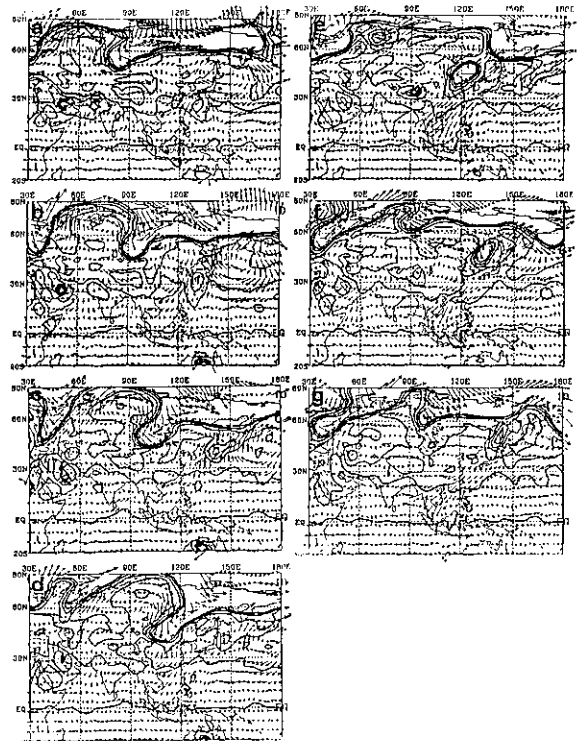 a
30E 60E 90E 120E 150E 180E
80N
60N
30N
EQ
20S
b
30E 60E 90E 120E 150E 180E
80N
60N
30N
EQ
20S
30E 60E 90E 120E 150E 180E
80N
60N
30N
EQ
20S
d
30E 60E 90E 120E 150E 180E
80N
60N
30N
EQ
30E 60E 90E 120E 150E 180E
80N
60N
30N
EQ
20S
f
30E 60E 90E 120E 150E 180E
80N
60N
30N
EQ
20S
g
30E 60E 90E 120E 150E 180E
80N
60N
30N
EQ
20S